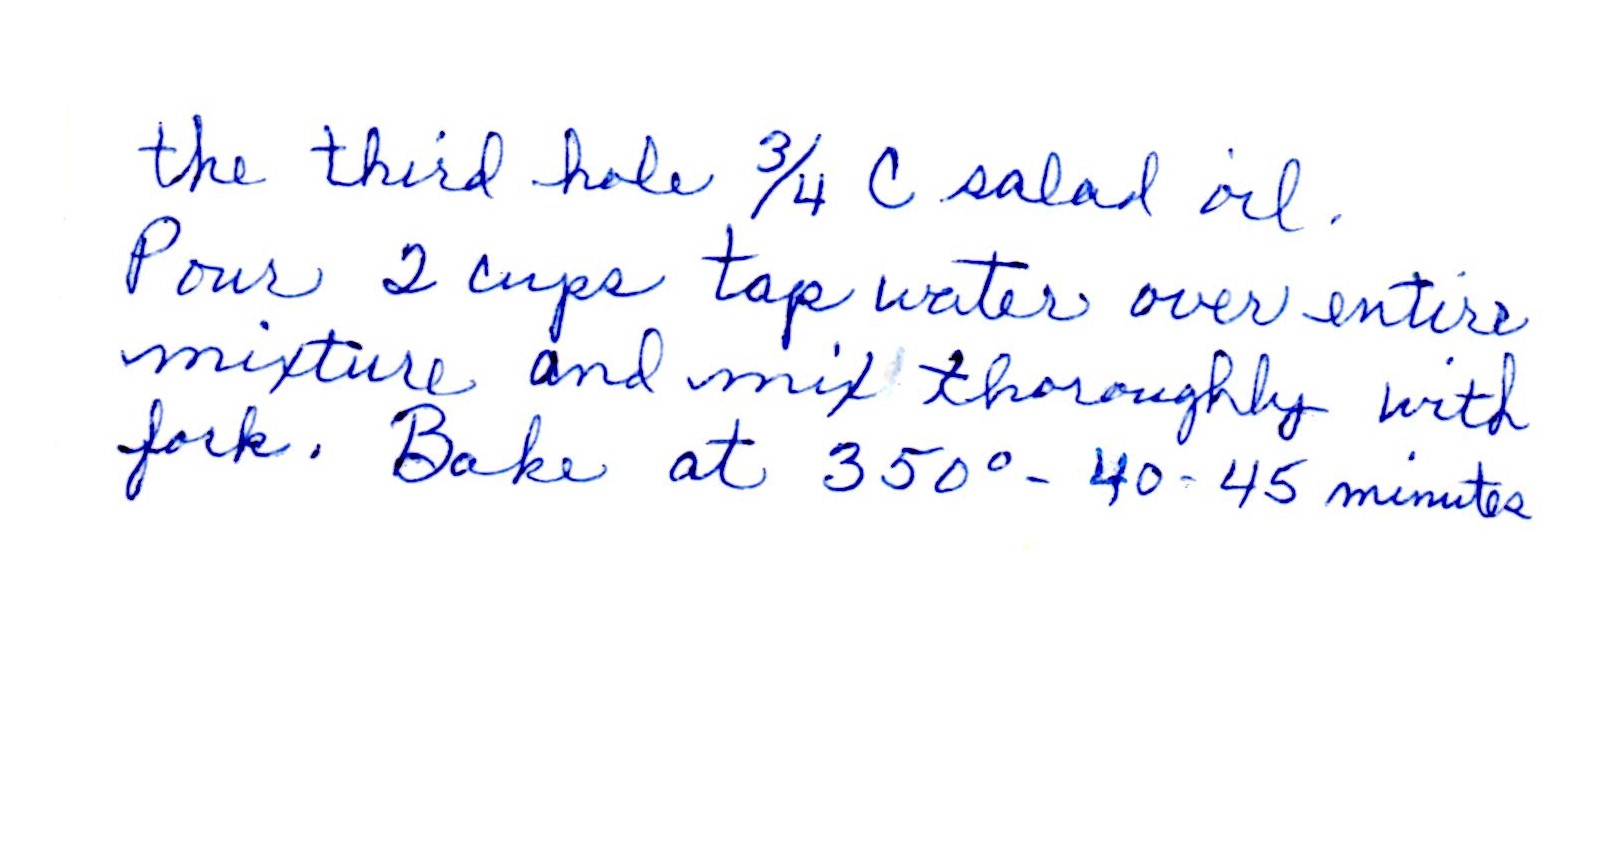 the third hole 3/4 C salad oil.
Pour 2 cups tap water over entire
mixture and mix thoroughly with
fork. Bake at 350° - 40 - 45 minutes